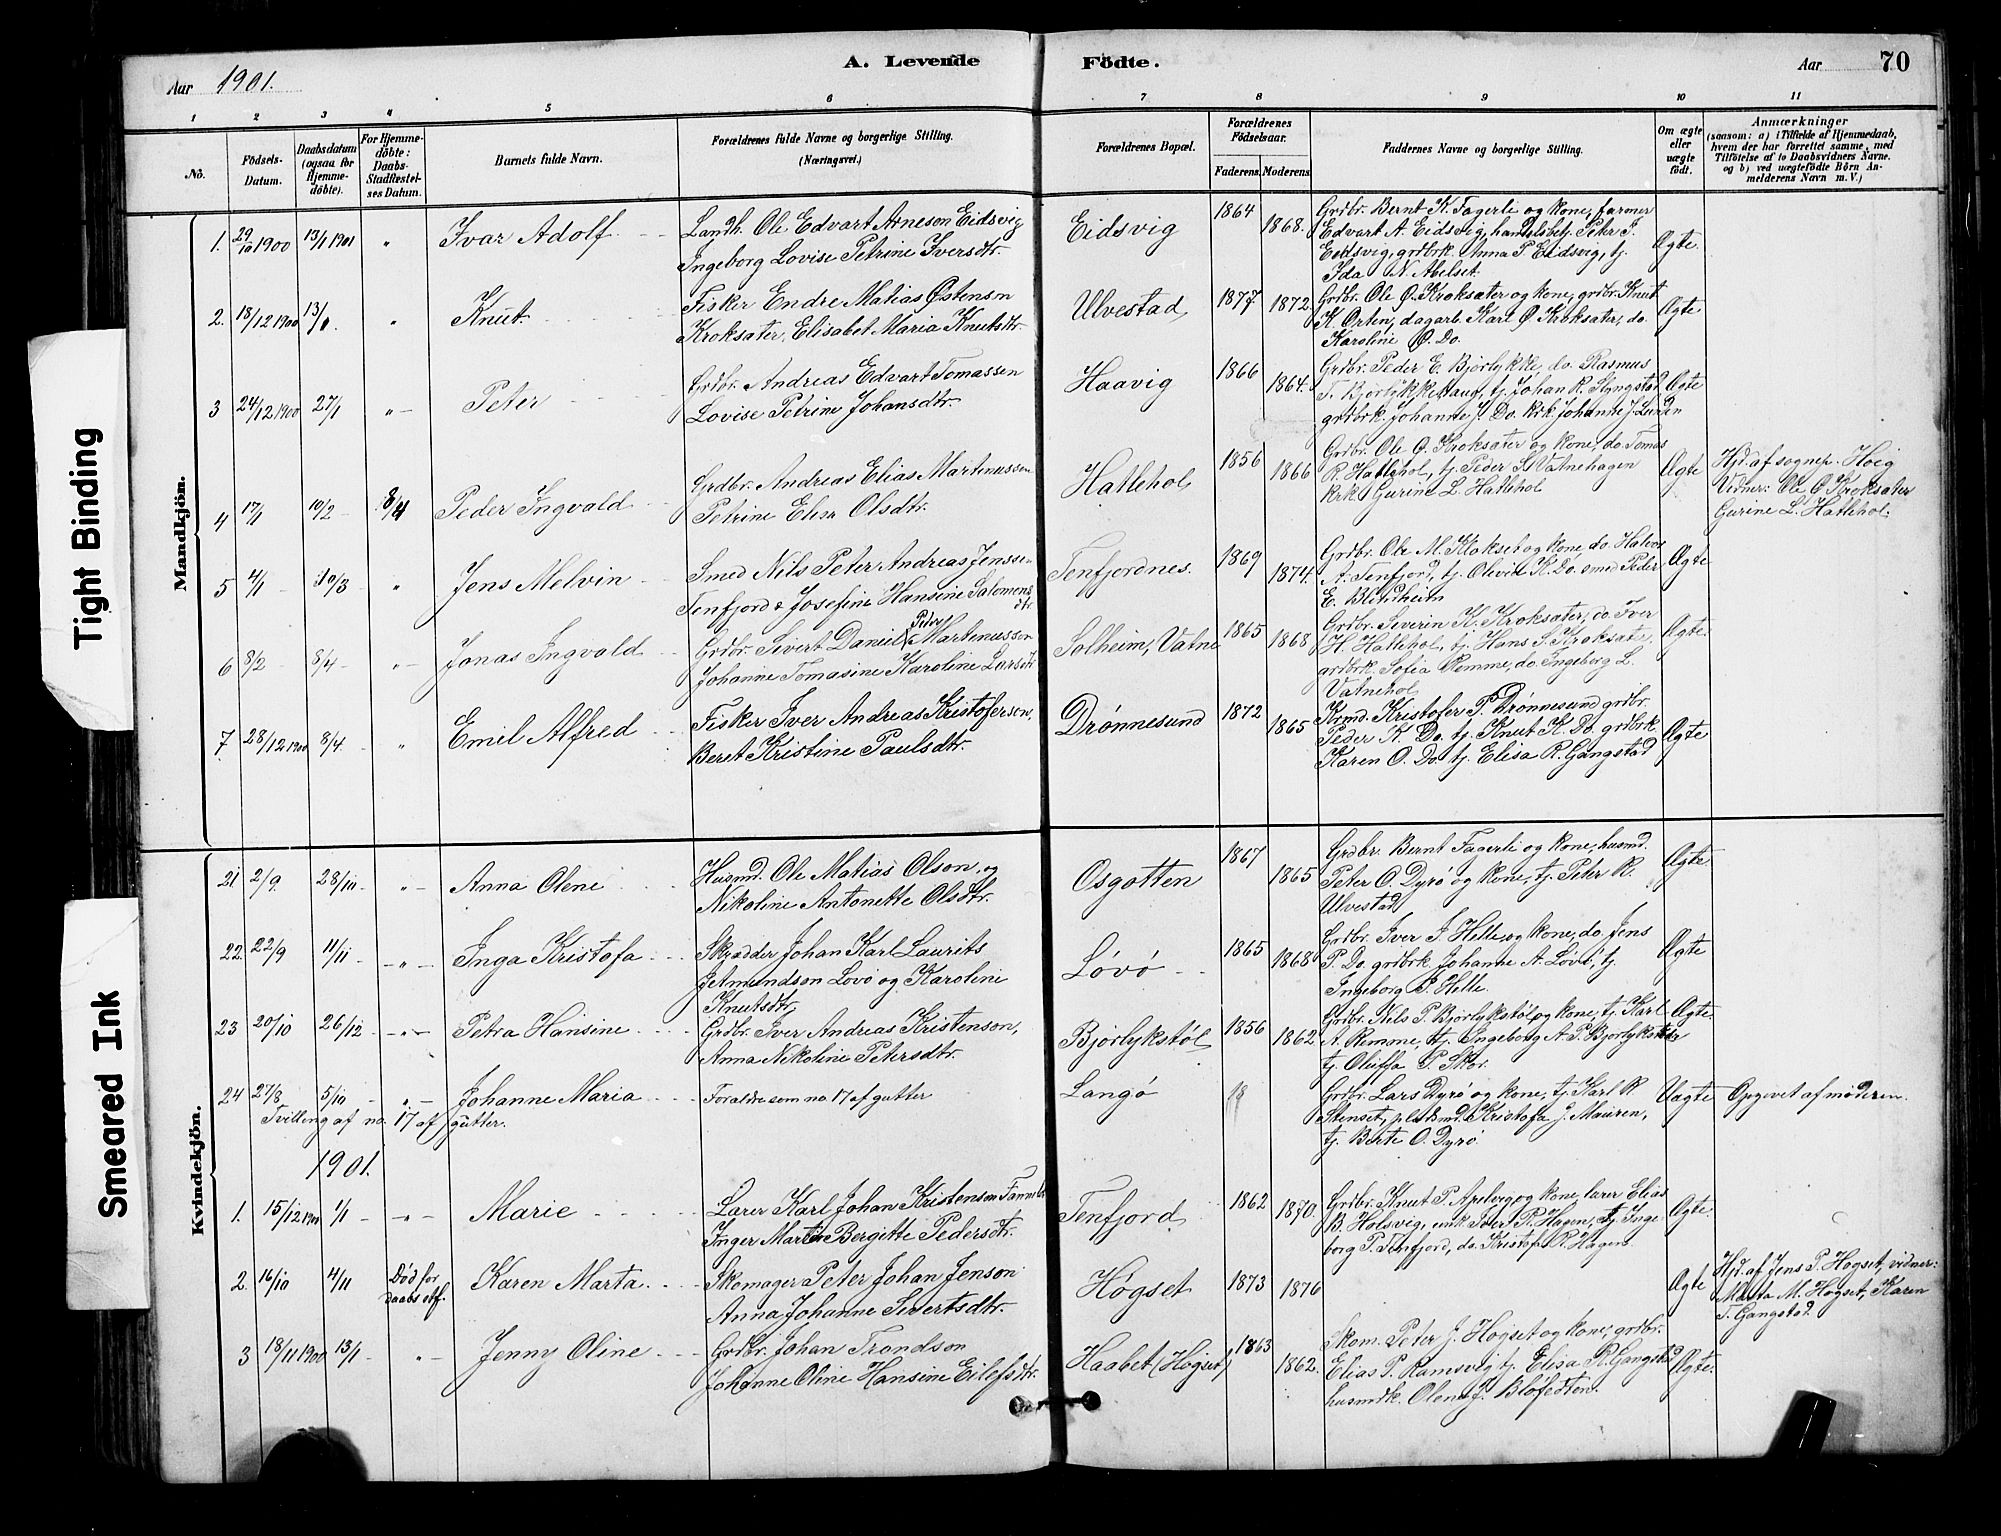 Aar 1901.
A. Levende Födte.
Aar 70
1 2 3 4 5 6 7 8 9 10 11
No.
Födsels-Datum.
Daabsdatum (ogsaa for Hjemmedöbte).
For Hjemmedöbte: Daabs-Stadfæstelses Datum.
Barnets fulde Navn.
Forældrenes fulde Navne og borgerlige Stilling. (Næringsvei.)
Forældrenes Bopæl.
Forældrenes Födselsaar.
Faderens. Moderens.
Faddernes Navne og borgerlige Stilling.
Om ægte eller uægte födt.
Anmærkninger
(saasom: a) i Tilfælde af Hjemmedaab,
hvem der har forrettet samme, med
Tilföielse af to Daabsvidners Navne.
og b) ved uægtefödte Börn An-
melderens Navn m. V.)
Mandkjön.
1. 29/10 1900 13/1 1901 " Ivar Adolf
Landh. Ole Edvart Arneson Eidsvig
Ingeborg Lovise Petrine Iversdtr.
Eidsvig 1864 1868.
Grdbr. Bernt K. Fagerli og kone, farmer
Edvart A. Eidsvig, handelsbetj. Peter P.
Eidsvig, grdbrk. Anna P. Eidsvig, tj.
Ida N. Abelset.
Ægte
2. 18/12 1900 13/1. " Knut
Fisker Endre Matias Østenson
Kroksæter, Elisabet Maria Knutsdtr
Ulvestad 1877 1872
Grdbr. Ole Ø. Kroksæter og kone, grdbr. Knut
K. Orten, dagarb. Karl Ø. Kroksæter, do.
Karoline O. Do.
Ægte
3 24/12 1900 27/1 " Peter
Grdbr. Andreas Edvart Tomassen
Lovise Petrine Johansdtr.
Haavig 1866 1864.
Grdbr. Peder E. Bjørlykke, do. Rasmus
T. Bjørlykkehaug, tj. Johan R. Slyngstad
grdbrk. Johanne J. Do. krk. Johanne J. Lunden
Ægte
4 17/1 10/2 8/4 Peder Ingvald
Grdbr. Andreas Elias Martinussen
Petrine Elisa Olsdtr.
Hatlehol 1856 1866
Grdbr. Ole Ø. Kroksæter og kone, do. Tomas
R. Hatlehol, tj. Peder S. Vatnehagen
krk. Gurine L. Hatlehol
Ægte
Hjd. af sognep. Høeg
Vidner: Ole Ø Kroksæter
Gurine L. Hatlehol.
5 4/1 10/3 " Jens Melvin
Smed Nils Peter Andreas Jensse-
Tenfjord & Josefine Hansine Salomons
dtr.
Tenfjordnes. 1869 1874.
Grdbr. Ole M. Klokset og kone, do. Halvor
A. Tenfjord, tj. Olevin K. Do. smed Peder
E. Blindheim
Ægte
6 8/2 8/4 " Jonas Ingvald
Grdbr. Sivert Daniel Peder Martinussen
Johanne Tomasine Karoline Larsdtr
Solheim, Vatne 1865 1868
Grdbr. Severin K. Kroksæter, do. Iver
H. Hatlehol, tj. Hans S. Kroksæte,
grdbrk. Sofia Remme, do. Ingeborg L.
Vatnehol
Ægte.
7 28/12 1900 8/4. " Emil Alfred
Fisker Iver Andreas Kristoferson,
Beret Kristine Paulsdtr.
Drønnesund 1872 1865
Krmd. Kristofer P. Drønnesund grdbr.
Peder K. Do. tj. Knut K. Do. grdbrk
Karen O. Do. tj. Elisa R. Gangstad
Ægte
Kvindekjön.
21 2/9. 28/10 " Anna Olene
Husmd. Ole Matias Olson og
Nikoline Antonette Olsdtr.
Osgotten 1867 1865
Grdbr. Bernt Fagerli og kone, husmd.
Peter O. Dyrø og kone, tj. Peter R.
Ulvestad
Ægte
22. 22/9 11/11 " Inga Kristofa
Skrædder Johan Karl Laurits
Amundson Løvø og Karoline
Knutsdtr.
Løvø 1865 1868
Grdbr. Iver J. Helle og kone, do. Jens
P. Do. grdbrk Johanne A. Løvø, tj.
Ingeborg P. Helle.
Ægte
23 20/10 26/12 " Petra Hansine
Grdbr. Iver Andreas Kristenson,
Anna Nikoline Petersdtr.
Bjørlykstøl 1856 1862.
Grdbr. Nils P. Bjørlykstøl og kone, tj. Karl
A. Remme, tj. Ingeborg A. P. Bjørlykstøl
tj. Oluffa P. Skor.
Ægte.
24 27/8 5/10 " Johanne Maria
Tvilling af no. 17 af gutter.
Forældre som no. 17 af gutter
Langø 18
Grdbr. Lars Dyrø og kone, tj. Karl R
Stenset, pladsmd. Kristofa J. Mauren,
tj. Berte O. Dyrø
Uægte
Opgivet af moderen.
1901.
1. 15/12 1900 1/1 " Marie
Lærer Karl Johan Kristenson Fannebo
Inger Marte Bergitte Pedersdtr.
Tenfjord 1862 1870.
Grdbr. Knut P. Apelvog og kone, lærer Elias
B. Holsvig, enk. Peder R. Hagen, tj. Inge-
borg P. Tenfjord, do. Kristofa R. Hagen.
Ægte.
2. 16/10 4/11 Død før daabs stf. Karen Marta
Skomager Peter Johan Jenson
Anna Johanne Sivertsdtr.
Høgset 1873 1876
Ægte
Hjd. af Jens P. Høgset, vidner:
Marta M. Høgset, Karen
T. Gangstad.
3 18/11 1900 13/1 " Jenny Oline
Grdbr. Johan Trondson
Johanne Oline Hansine Eilefsdtr.
Haabet (Høgset) 1863 1862.
Skom. Peter J. Høgset og kone, grdbr.
Elias P. Ramsvig tj. Elisa R. Gangstad
husmdk. Olena J.
Ægte.
Tight Binding
Smeared Ink